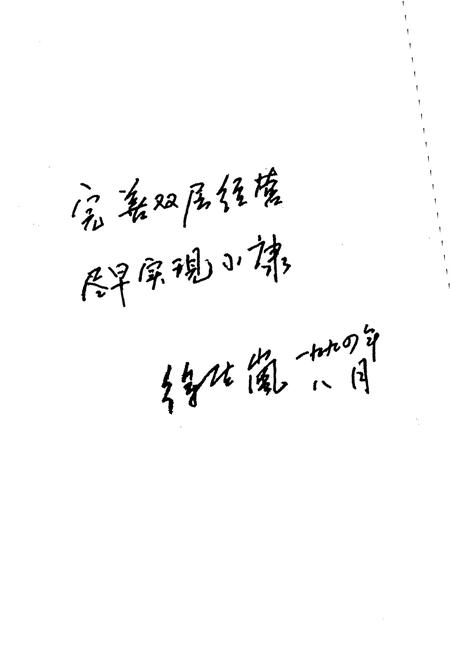 完善双层经营
尽早实现小康
徐 岚 一九九四年
八月